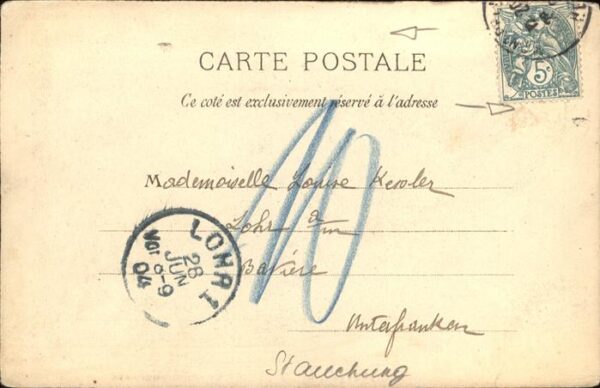 CARTE POSTALE
Ce coté est exclusivement réservé à l'adresse
5c
POSTES
10
Mademoiselle Louise Kessler
Lohr a/m
Bavière
Unterfranken
Stauchung
LOHR 1
26
JUN
Vor 8-9
04